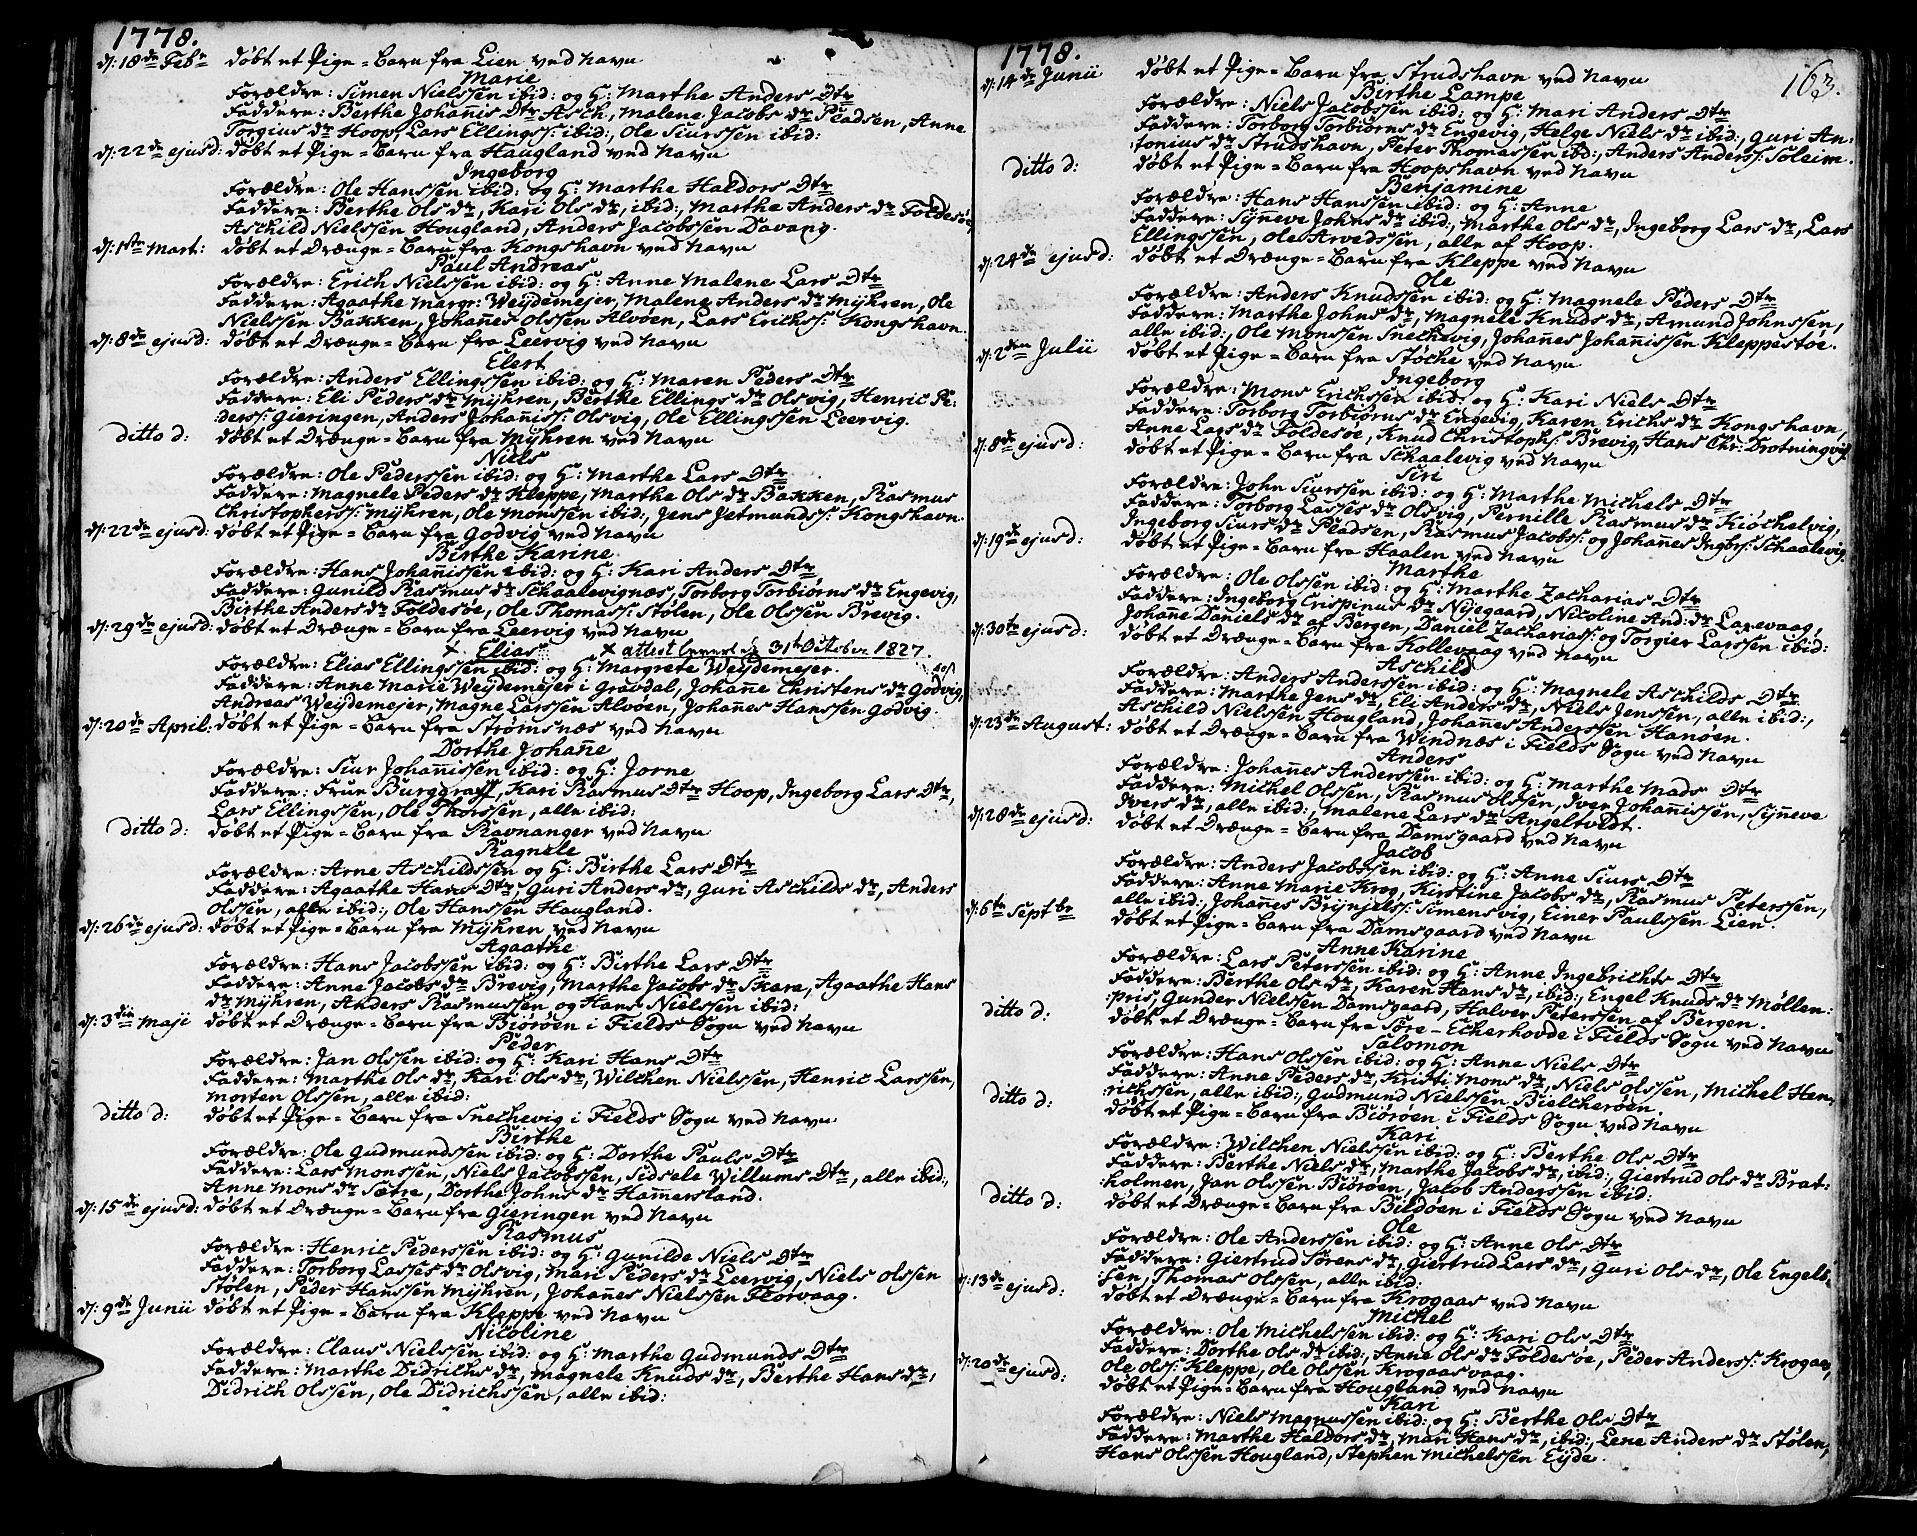 1778.
d: 18de Febr døbt et Pige=Barn fra Lien ved Navn
Marie
Forældre: Simen Nielssen ibid: og H: Marthe Anders Dtr
Faddere: Berthe Johannis Dtr Asch, Malene Jacobs dr Pladsen, Anne
Torgius dr Hoop, Lars Ellings: ibid:, Ole Siurssen ibid:
d: 22de ejusd: døbt et Pige=Barn fra Haugland ved Navn
Ingeborg
Forældre: Ole Hanssen ibid: og H: Marthe Haldors Dtr
Faddere: Berthe Ols dr, Kari Ols dr, ibid:, Marthe Anders dr Foldesøe,
Aschild Nielssen Hougland, Anders Jacobssen Davang.
d: 1ste Mart: døbt et Drænge=Barn fra Kongshavn ved Navn
Paul Andreas
Forældre: Erich Nielssen ibid: og H: Anne Malene Lars Dtr
Faddere: Agaathe Margr: Weydemejer, Malene Anders dr Myhren, Ole
Nielssen Bakken, Johannes Olssen Alvøen, Lars Erichs: Kongshavn.
d: 8de ejusd: døbt et Drænge=Barn fra Leervig ved Navn
Elert
Forældre: Anders Ellingssen ibid: og H: Maren Peders Dtr
Faddere: Eli Peders dr Myhren, Berthe Ellings dr Olsvig, Henric Pe:
ders: Gieringen, Anders Johannis: Olsvig, Ole Ellingssen Leervig.
ditto d: døbt et Drænge=Barn fra Myhren ved Navn
Niels
Forældre: Ole Pederssen ibid: og H: Marthe Lars Dtr
Faddere: Magnele Peders dr Kleppe, Marthe Ols dr Bakken, Rasmus
Christophers: Myhren, Ole Monssen ibid:, Jens Jetmunds: Kongshavn.
d: 22de ejusd: døbt et Pige=Barn fra Godvig ved Navn
Birthe Karine
Forældre: Hans Johannissen ibid: og H: Kari Anders Dtr
Faddere: Gunild Rasmus dr Schaalevignæs, Torborg Torbiørns dr Engevig,
Birthe Anders dr Foldesøe, Ole Thomas: Stølen, Ole Olssen Brevig.
d: 29de ejusd: døbt et Drænge=Barn fra Leervig ved Navn
x Elias x attest leveret d: 31te October 1827.
Forældre: Elias Ellingssen ibid: og H: Margrete Weydemejer.
Faddere: Anne Marie Weydemejer i Gravdal, Johanne Christens dr Godvig,
Andreas Weydemejer, Magne Larssen Alvøen, Johannes Hanssen Godvig.
d: 20de April: døbt et Pige=Barn fra Strømsnæs ved Navn
Dorthe Johanne
Forældre: Siur Johannissen ibid: og H: Jorne
Faddere: Frue Burggraff, Kari Rasmus Dtr Hoop, Ingeborg Lars Dtr,
Lars Ellingssen, Ole Thorssen, alle ibid:
ditto d: døbt et Pige=Barn fra Ravnanger ved Navn
Ragnele
Forældre: Arne Aschildssen og H: Birthe Lars Dtr
Faddere: Agaathe Hans Dtr, Guri Anders dr, Guri Aschilds dr, Anders
Olssen, alle ibid:, Ole Hanssen Haugland.
d: 26de ejusd: døbt et Pige=Barn fra Myhren ved Navn
Agaathe
Forældre: Hans Jacobssen ibid: og H: Birthe Lars Dtr
Faddere: Anne Jacobs dr Brevig, Marthe Jacobs dr Skare, Agaathe Hans
dr Myhren, Anders Rasmussen og Hans Nielssen ibid:
d: 3die Maji døbt et Drænge=Barn fra Biørøen i Fields Sogn ved Navn
Peder
Forældre: Jan Olssen ibid: og H: Kari Hans Dtr
Faddere: Marthe Ols dr, Kari Ols dr, Wilchen Nielssen, Henric Larssen,
Morten Olssen, alle ibid:
ditto d: døbt et Pige=Barn fra Snechevig i Fields Sogn ved Navn
Birthe
Forældre: Ole Gudmundssen ibid: og H: Dorthe Pauls Dtr
Faddere: Lars Monssen, Niels Jacobssen, Sidsele Willums Dtr, alle ibid:,
Anne Mons dr Sætre, Dorthe Johns dr Hammersland.
d: 15de ejusd: døbt et Drænge=Barn fra Gieringen ved Navn
Rasmus
Forældre: Henric Pederssen ibid: og H: Gunilde Niels Dtr
Faddere: Torborg Lasses dr Olsvig, Mari Peders dr Leervig, Niels Olssen
Stølen, Peder Hanssen Myhren, Johannes Nielssen Florvaag.
d: 9de Junii døbt et Pige=Barn fra Kleppe ved Navn
Nicoline
Forældre: Claus Nielssen ibid: og H: Marthe Gudmunds Dtr
Faddere: Marthe Didrichs dr, Magnele Knuds dr, Berthe Hans dr,
Didrich Olssen, Ole Didrichssen, alle ibid:
1778.
163.
d: 14de Junii døbt et Pige=Barn fra Strudshavn ved Navn
Birthe Lampe
Forældre: Niels Jacobssen ibid: og H: Mari Anders Dtr
Faddere: Torborg Torbiørns dr Engevig, Helge Niels dr ibid:, Guri An:
:tonius dr Strudshavn, Peter Thomassen ibd:, Anders Anders: Soleim.
ditto d: døbt et Pige=Barn fra Hoopshavn ved Navn
Benjamine
Forældre: Hans Hanssen ibid: og H: Anne
Faddere: Synneve Johns dr ibid:, Marthe Ols dr, Ingeborg Lars dr, Lars
Ellingssen, Ole Arvedssen, alle af Hoop.
d: 24de ejusd: døbt et Drænge=Barn fra Kleppe ved Navn
Ole
Forældre: Anders Knudssen ibid: og H: Magnele Peders Dtr
Faddere: Marthe Johns dr, Magnele Knuds dr, Amund Johnssen,
alle ibid:, Ole Monssen Snechevig, Johannes Johannissen Kleppestøe.
d: 2den Julii døbt et Pige=Barn fra Støche ved Navn
Ingeborg
Forældre: Mons Erichssen ibid: og H: Kari Niels Dtr
Faddere: Torborg Torbiørns dr Engevig, Karen Erichs dr Kongshavn,
Anne Lars dr Foldesøe, Knud Christophs: Brevig, Hans Chr: Drotningvig.
d: 8de ejusd: døbt et Pige=Barn fra Schaalevig ved Navn
Siri
Forældre: John Siurssen ibid: og H: Marthe Michels Dtr
Faddere: Torborg Lasses dr Olsvig, Pernille Rasmus dr Kiøchelvig,
Ingeborg Siurs dr Pladsen, Rasmus Jacobs: og Johannes Ingbrs: Schaalevig.
d: 19de ejusd: døbt et Pige=Barn fra Haalen ved Navn
Marthe
Forældre: Ole Olssen ibid: og H: Marthe Zacharias Dtr
Faddere: Ingeborg Crispinus dr Nyegaard, Nicoline And: dr Laxevaag,
Johanne Daniels dr af Bergen, Daniel Zacharias: og Torgier Larssen ibid:
d: 30te ejusd: døbt et Drænge=Barn fra Kollevaag ved Navn
Aschild
Forældre: Anders Anderssen ibid: og H: Magnele Aschilds Dtr
Faddere: Marthe Jens dr, Eli Anders dr, Niels Jenssen, alle ibid:,
Aschild Nielssen Hougland, Johannes Anderssen Hanøen.
d: 23de August: døbt et Drænge=Barn fra Windnæs i Fields Sogn ved Navn
Anders
Forældre: Johannes Anderssen ibid: og H: Marthe Mads Dtr
Faddere: Michel Olssen, Rasmus Olssen, Iver Johannissen, Synneve
Ivers dr, alle ibid:, Malene Lars dr Angeltvedt.
d: 28de ejusd: døbt et Drænge=Barn fra Damsgaard ved Navn
Jacob
Forældre: Anders Jacobssen ibid: og H: Anne Siurs Dtr
Faddere: Anne Marie Krog, Kirstine Jacobs dr, Rasmus Peterssen,
alle ibid:, Johannes Brynjels: Simensvig, Einer Paulssen Lien.
d: 6te Septbr døbt et Pige=Barn fra Damsgaard ved Navn
Anne Karine
Forældre: Lars Peterssen ibid: og H: Anne Ingebrichts Dtr
Faddere: Berthe Ols dr, Karen Hans dr, ibid:, Engel Knuds dr Møllen:
:pris, Gunder Nielssen Damsgaard, Halver Peterssen af Bergen.
ditto d: døbt et Drænge=Barn fra Søre-Echerhovde i Fields Sogn ved Navn
Salomon
Forældre: Hans Olssen ibid: og H: Anne Niels Dtr
Faddere: Anne Peders dr, Kristi Mons dr, Niels Olssen, Michel Hen:
richssen, alle ibid:, Gudmund Nielssen Bielcherøen.
ditto d: døbt et Pige=Barn fra Biørøen i Fields Sogn ved Navn
Kari
Forældre: Wilchen Nielssen ibid: og H: Berthe Ols Dtr
Faddere: Berthe Niels dr, Marthe Jacobs dr, ibid:, Giertrud Ols dr Brat:
:holmen, Jan Olssen Biørøen, Jacob Anderssen ibid:
ditto d: døbt et Drænge=Barn fra Bildøen i Fields Sogn ved Navn
Ole
Forældre: Ole Anderssen ibid: og H: Anne Ols Dtr
Faddere: Giertrud Sørens dr, Giertrud Lars dr, Guri Ols dr, Ole Engels:
sen, Thomas Olssen, alle ibid:
d: 13de ejusd: døbt et Drænge=Barn fra Krogaas ved Navn
Michel
Forældre: Ole Michelssen ibid: og H: Kari Ols Dtr
Faddere: Dorthe Ols dr ibid:, Anne Ols dr Foldesøe, Peder Anders: Krogaas,
Ole Ols: Kleppe, Ole Olssen Krogaasvaag.
d: 20de ejusd: døbt et Pige=Barn fra Hougland ved Navn
Kari
Forældre: Niels Magnussen ibid: og H: Berthe Ols Dtr
Faddere: Marthe Haldors dr, Mari Hans dr, ibid:, Lene Anders dr Stølen,
Hans Olssen Hougland, Stephen Michelssen Eyde.